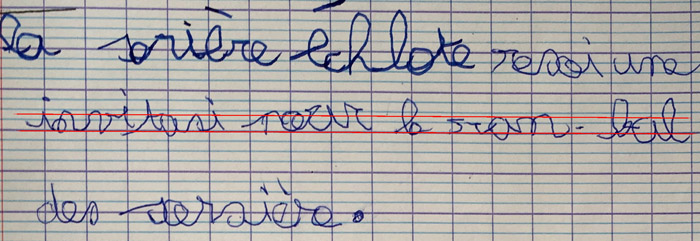 La sorière échlote resoi une
invitasi pour le gran-bal
des sersière.